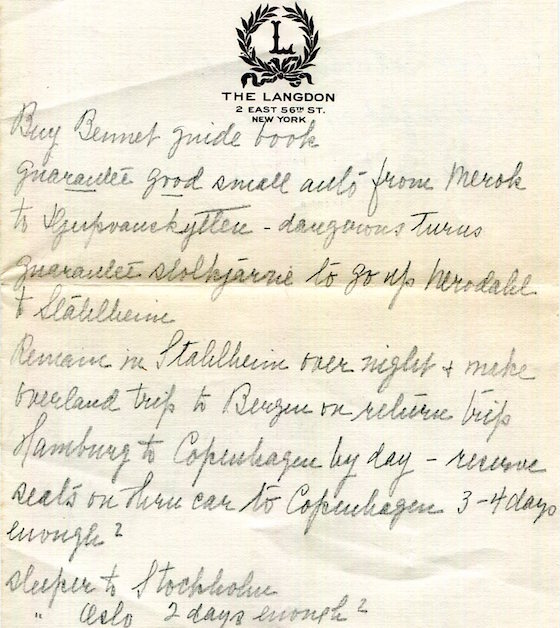 L
THE LANGDON
2 EAST 56TH ST.
NEW YORK
Buy Bennet guide book
guarantee good small auto from Merok
to Djupvasskytten - dangerous turns
guarantee stolkjarrie to go up Nerodahl
to Stahlheim
Remain in Stahlheim over night + make
overland trip to Bergen on return trip
Hamburg to Copenhagen by day - reserve
seats on thru car to Copenhagen 3-4 days
enough?
sleeper to Stockholm
" Oslo 2 days enough?